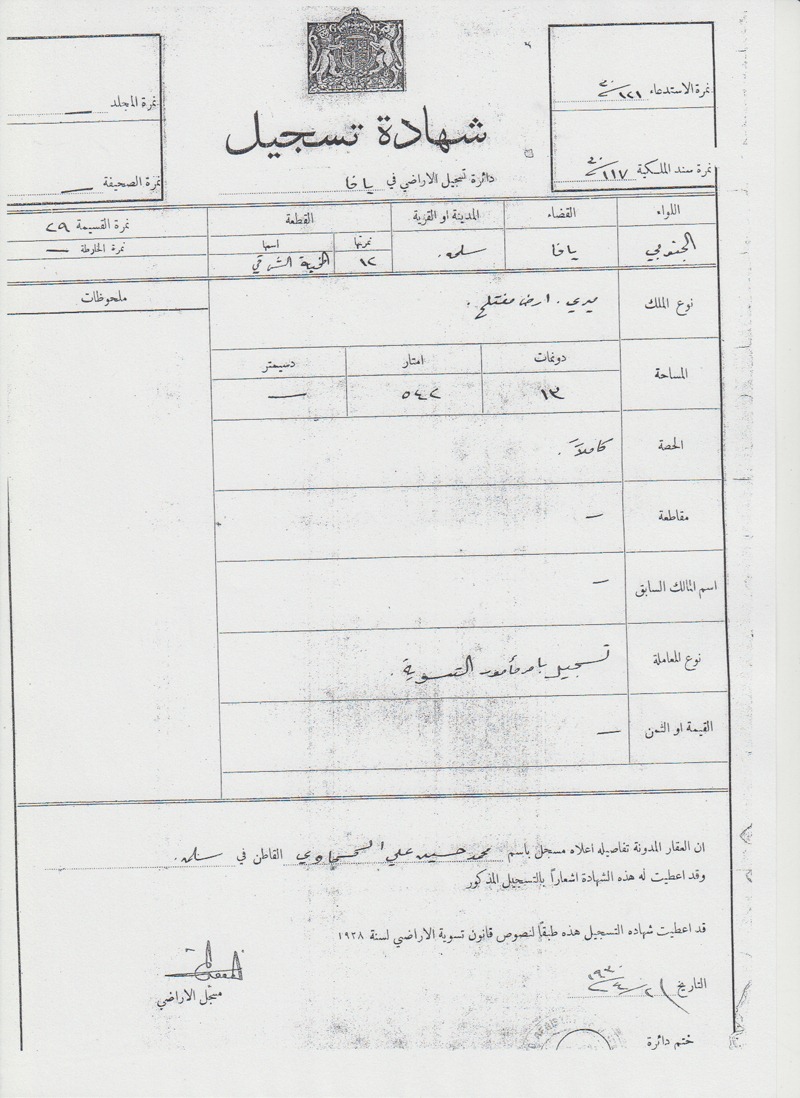 نمرة الاستدعاء ١٢١/٣٠
نمرة سند الملكية ١١٧/٣٠
نمرة المجلد —
نمرة الصحيفة —
شهادة تسجيل
دائرة تسجيل الاراضي في يافا
اللواء القضاء المدينة او القرية القطعة نمرة القسيمة ٢٩
نمرتها اسمها نمرة الخارطة —
الجنوبي يافا سلمه. ١٢ الشرقي
ملحوظات
نوع الملك ميري. ارض مفتلح.
المساحة دونمات امتار دسيمتر
١٣ ٥٤٢ —
الحصة كاملاً.
مقاطعة —
اسم المالك السابق —
نوع المعاملة تسجيل بامر مأمور التسوية.
القيمة او الثمن —
ان العقار المدونة تفاصيله اعلاه مسجل باسم محمد حسين علي القاطن في سلمه.
وقد اعطيت له هذه الشهادة اشعاراً بالتسجيل المذكور
قد اعطيت شهاده التسجيل هذه طبقاً لنصوص قانون تسوية الاراضي لسنة ١٩٢٨
التاريخ ١٩٣٠
مسجل الاراضي
ختم دائرة